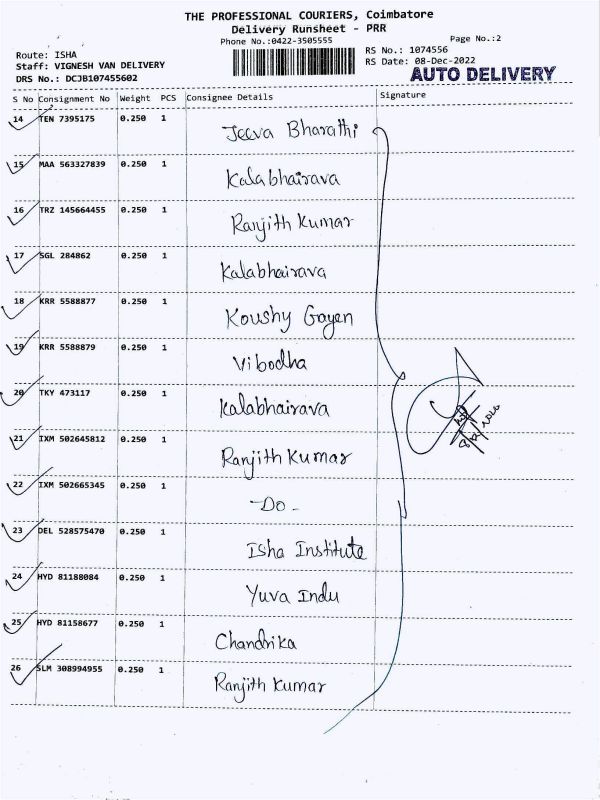 THE PROFESSIONAL COURIERS, Coimbatore
Delivery Runsheet - PRR
Phone No.:0422-3505555
Page No.:2
Route: ISHA
RS No.: 1074556
Staff: VIGNESH VAN DELIVERY
RS Date: 08-Dec-2022
DRS No.: DCJB107455602
AUTO DELIVERY
S No Consignment No Weight PCS Consignee Details Signature
14 TEN 7395175 0.250 1 Jeeva Bharathi
15 MAA 563327839 0.250 1 Kalabhairava
16 TRZ 145664455 0.250 1 Ranjith Kumar
17 SGL 284862 0.250 1 Kalabhairava
18 KRR 5588877 0.250 1 Koushy Gayen
19 KRR 5588879 0.250 1 Vibodha
20 TKY 473117 0.250 1 Kalabhairava
21 IXM 502645812 0.250 1 Ranjith Kumar
22 IXM 502665345 0.250 1 -Do-
23 DEL 528575470 0.250 1 Isha Institute
24 HYD 81188084 0.250 1 Yuva Indu
25 HYD 81158677 0.250 1 Chandrika
26 SLM 308994955 0.250 1 Ranjith Kumar